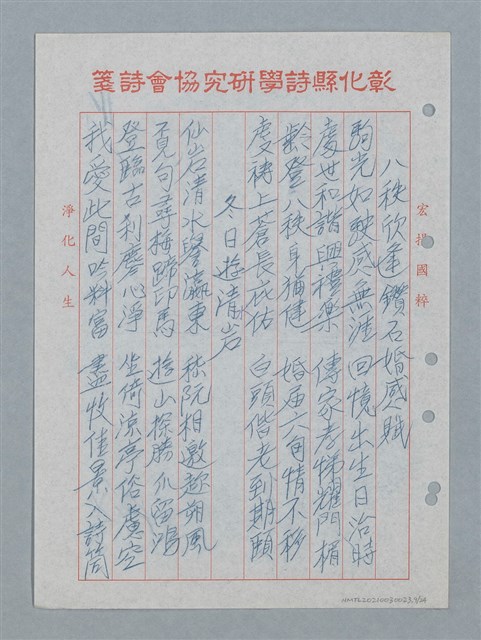 彰化縣詩學研究協會詩箋
宏揚國粹
八秩欣逢鑽石婚感賦
駒光如駛感無涯 回憶出生日治時
處世和諧興禮樂 傳家孝悌耀門楣
齡登八秩身猶健 婚届六旬情不移
虔禱上蒼長庇佑 白頭偕老到期頤
冬日遊清水岩
仙岩清水譽瀛東 嵇阮相邀趁朔風
覓句尋梅蹄印馬 遊山探勝爪留鴻
登臨古剎塵心淨 坐倚涼亭俗慮空
我愛此間吟料富 盡收佳景入詩筒
淨化人生